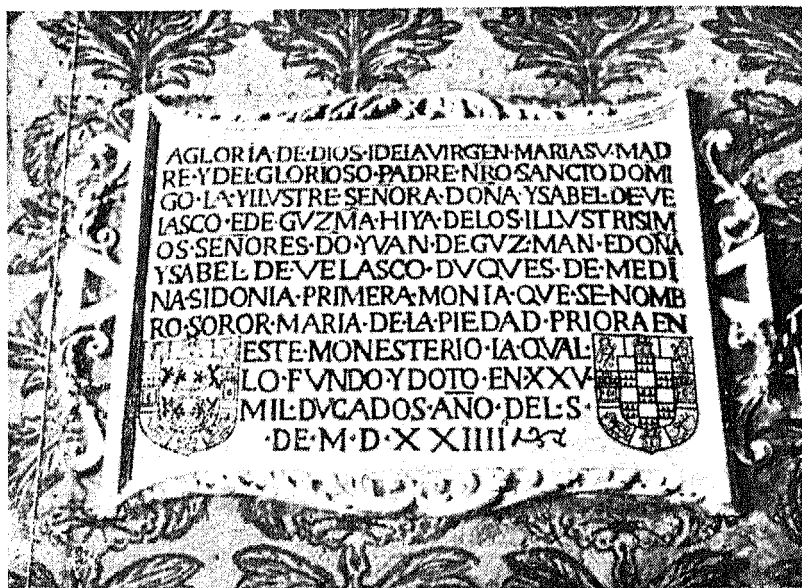 AGLORIA·DE·DIOS·IDELAVIRGEN·MARIASV·MAD
RE·Y·DEL·GLORIOSO·PADRE·NRO·SANCTO·DOMI
GO·LA·YLLVSTRE·SEÑORA·DOÑA·YSABEL·DE·VE
LASCO·EDE·GVZMA·HIYA·DELOS·ILLVSTRISIM
OS·SEÑORES·DO·YVAN·DE·GVZ·MAN·EDOÑA
YSABEL·DE·VELASCO·DVQVES·DE·MEDI
NA·SIDONIA·PRIMERA·MONIA·QVE·SE·NOMB
RO·SOROR·MARIA·DE·LA·PIEDAD·PRIORA EN
ESTE·MONESTERIO·LA·QVAL·
LO·FVNDO·Y DOTO·EN·XXV·
MIL·DVCADOS·AÑO·DEL·S·
·DE·M·D·XXIIII